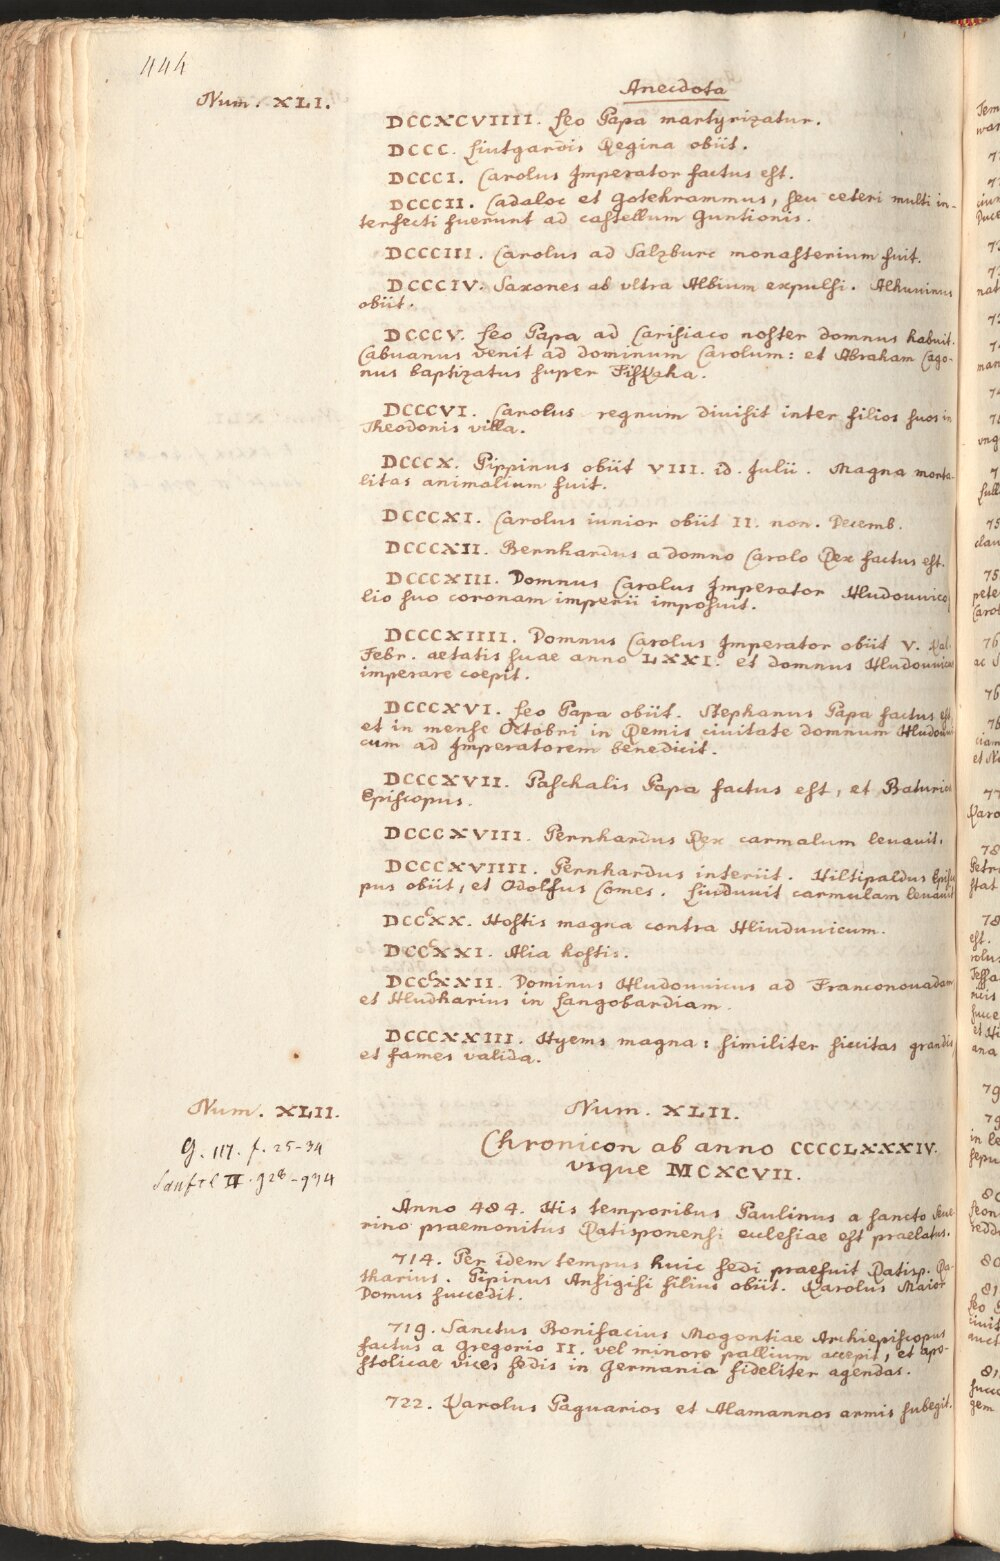 444
Anecdota
Num. XLI.
DCCXCVIIII. Leo Papa martyrizatur.
DCCC. Liutgardis Regina obiit.
DCCCI. Carolus Imperator factus est.
DCCCII. Cadaloc et Gotehrammus, seu ceteri multi in-
terfecti fuerunt ad castellum Guntionis.
DCCCIII. Carolus ad Salzburc monasterium fuit.
DCCCIV. Saxones ab vltra Albium expulsi. Alhuuinus
obiit.
DCCCV. Leo Papa ad Carisiaco noster domnus habuit.
Cabuanus venit ad dominum Carolum: et Abraham Cago-
nus baptizatus super Fiskaha.
DCCCVI. Carolus regnum divisit inter filios suos in
Theodonis villa.
DCCCX. Pippinus obiit VIII. id. Julii. Magna morta-
litas animalium fuit.
DCCCXI. Carolus iunior obiit II. non. Decemb.
DCCCXII. Bernhardus a domno Carolo Rex factus est.
DCCCXIII. Domnus Carolus Imperator Hludouuico
lio suo coronam imperii imposuit.
DCCCXIIII. Domnus Carolus Imperator obiit V. Kal.
Febr. aetatis suae anno LXXI. et domnus Hludouuicus
imperare coepit.
DCCCXVI. Leo Papa obiit. Stephanus Papa factus est,
et in mense Octobri in Remis ciuitate domnum Hludouui-
cum ad Imperatorem benedicit.
DCCCXVII. Paschalis Papa factus est, et Baturicus
Episcopus.
DCCCXVIII. Pernhardus Rex carmalum leuauit.
DCCCXVIIII. Pernhardus interiit. Hiltipaldus Episco
pus obiit, et Odolfus Comes. Liuduuit carmulam leuauit
DCCCXX. Hostis magna contra Hliuduuicum.
DCCCXXI. Alia hostis.
DCCCXXII. Dominus Hludouuicus ad Franconouadam,
et Hludharius in Langobardiam.
DCCCXXIII. Hyems magna: similiter siccitas grandis,
et fames valida.
Num. XLII.
Num. XLII.
G. 117. f. 25-34
Sanftl II. 928-934
Chronicon ab anno CCCCLXXXIV.
vsque MCXCVII.
Anno 484. His temporibus Paulinus a sancto Seue-
rino praemonitus Ratisponensi ecclesiae est praelatus.
714. Per idem tempus huic sedi praefuit Ratisp. Ra-
tharius. Pipinus Ansigisi filius obiit. Karolus Maior
Domus succedit.
719. Sanctus Bonifacius Mogontiae Archiepiscopus
factus a Gregorio II. vel minore pallium accepit, et apo-
stolicae vices sedis in Germania fideliter agendas.
722. Karolus Paguarios et Alamannos armis subegit.